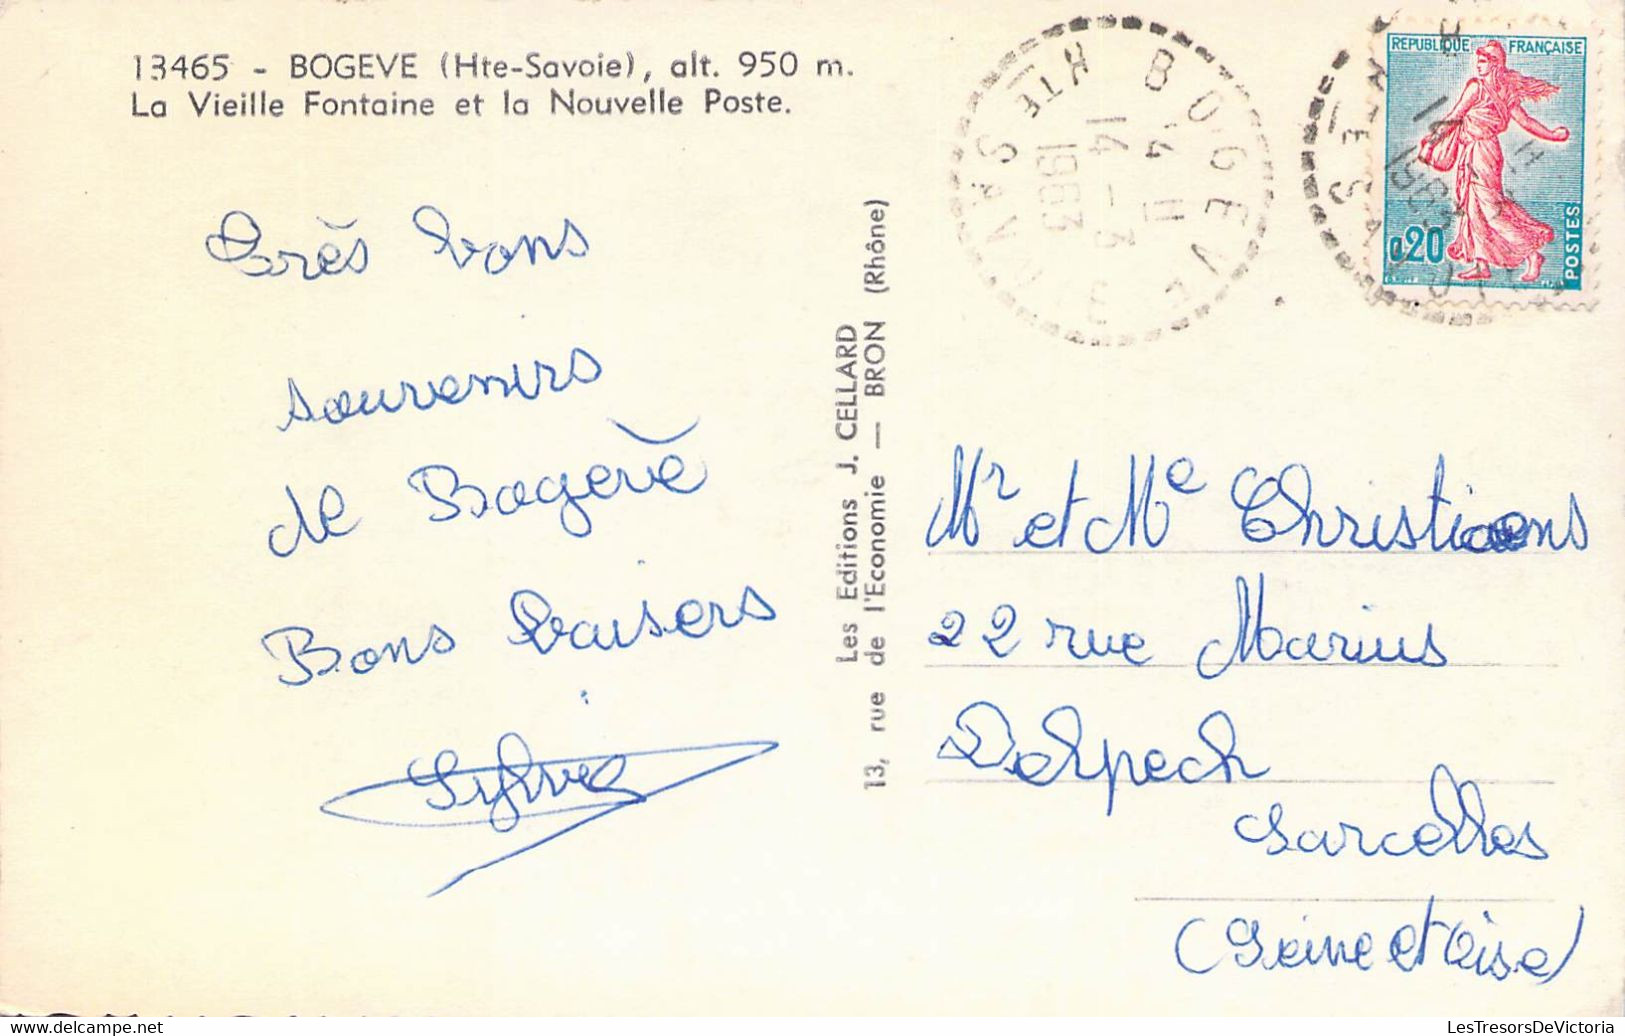 13465 - BOGEVE (Hte-Savoie), alt. 950 m.
La Vieille Fontaine et la Nouvelle Poste.
Très bons
souvenirs
de Bogève
Bons baisers
Sylvie
Les Editions J. CELLARD
13, rue de l'Economie — BRON (Rhône)
BOGEVE
HTE SAVOIE
14 H
14 - 3
1963
REPUBLIQUE FRANÇAISE
0,20
POSTES
Mr et Me Christiaens
22 rue Marius
Delpech
Sarcelles
(Seine et Oise)
LesTresorsDeVictoria